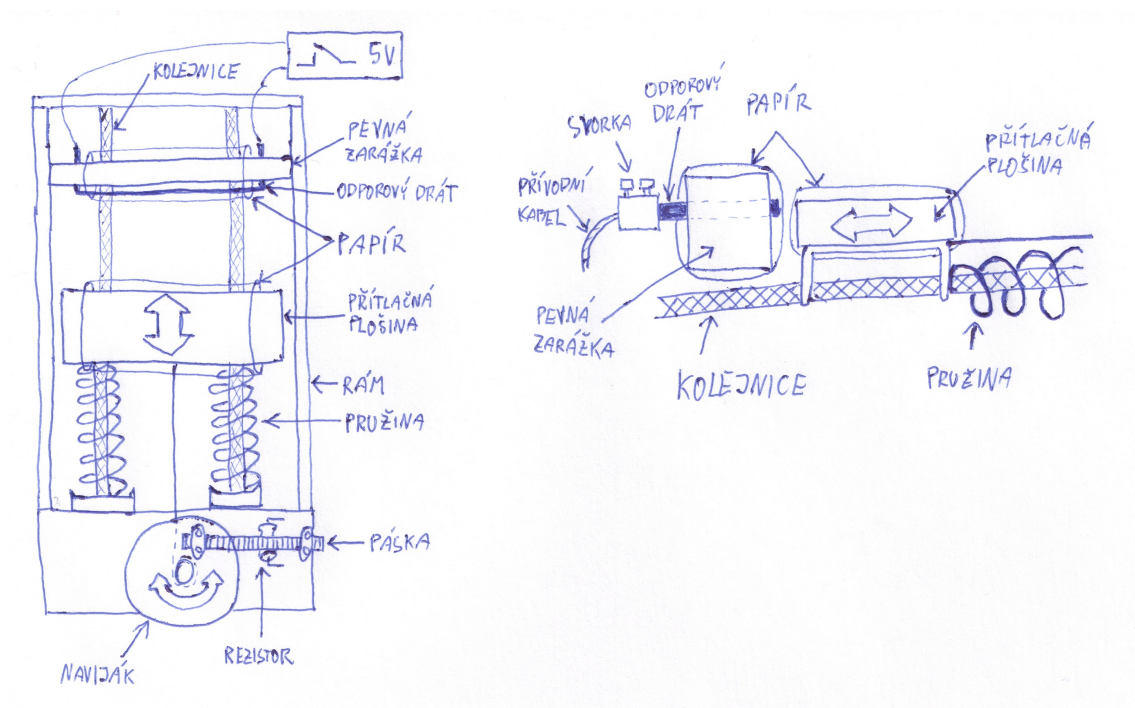 5V
KOLEJNICE
PEVNÁ
ZARÁŽKA
ODPOROVÝ DRÁT
PAPÍR
PŘÍTLAČNÁ
PLOŠINA
RÁM
PRUŽINA
PÁSKA
REZISTOR
NAVIJÁK
SVORKA
ODPOROVÝ
DRÁT
PAPÍR
PŘÍTLAČNÁ
PLOŠINA
PŘÍVODNÍ
KABEL
PEVNÁ
ZARÁŽKA
KOLEJNICE
PRUŽINA